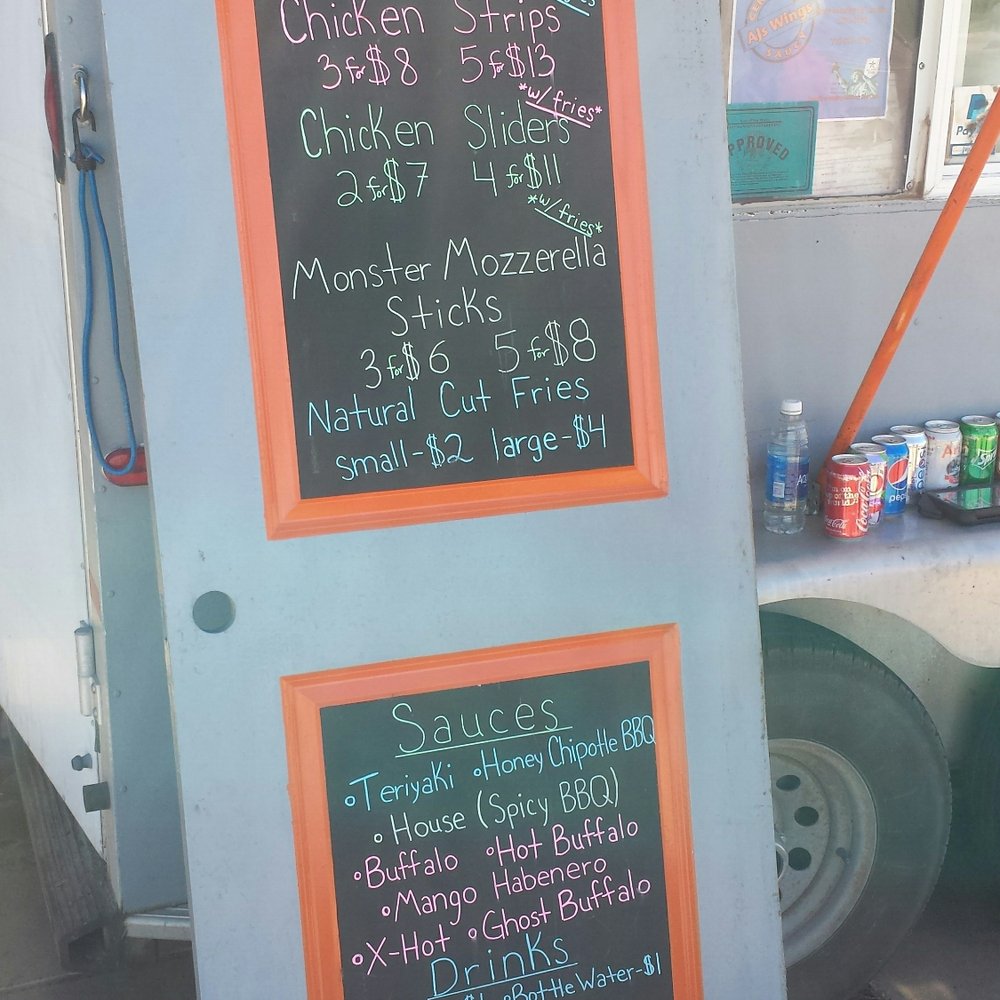 Chicken Strips
3 for $8 5 for $13
*w/ fries*
Chicken Sliders
2 for $7 4 for $11
*w/fries*
Monster Mozzerella
Sticks
3 for $6 5 for $8
Natural Cut Fries
small-$2 large-$4
Sauces
Teriyaki Honey Chipotle BBQ
House (Spicy BBQ)
Buffalo Hot Buffalo
Mango Habenero
X-Hot Ghost Buffalo
Drinks
Bottle Water-$1
AJs Wings
SAUCY
APPROVED
Coca-Cola
pepsi